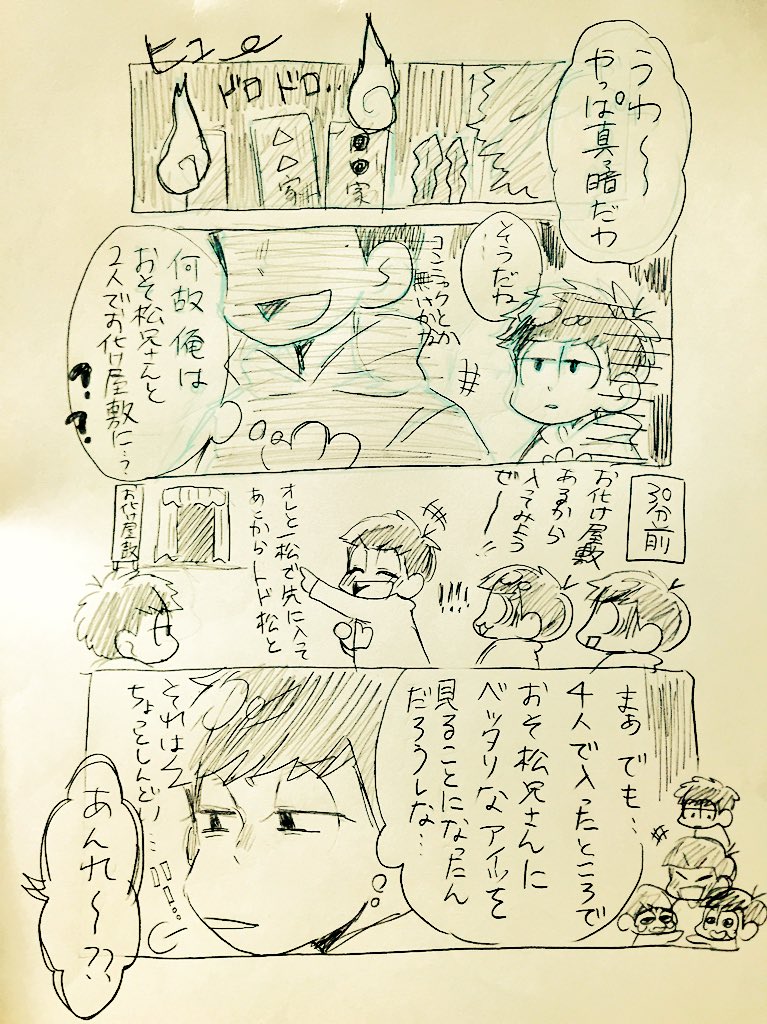 うわ〜
やっぱ真っ暗だわ
ヒュ〜
ドロドロ…
家
△△家
そうだね
…
コンニャクとか
無いかな
何故 俺は
おそ松兄さんと
2人でお化け屋敷に…?
??
30分前
お化け屋敷
あるから
入ってみよう
ぜー!!
!!!!
オレと一松で先に入って
あとからトド松と
お化け屋敷
まぁ でも…
4人で入ったところで
おそ松兄さんに
ベッタリなアイツを
見ることになったん
だろうしな…
それはそれで
ちょっとしんどい…
あんれ〜??